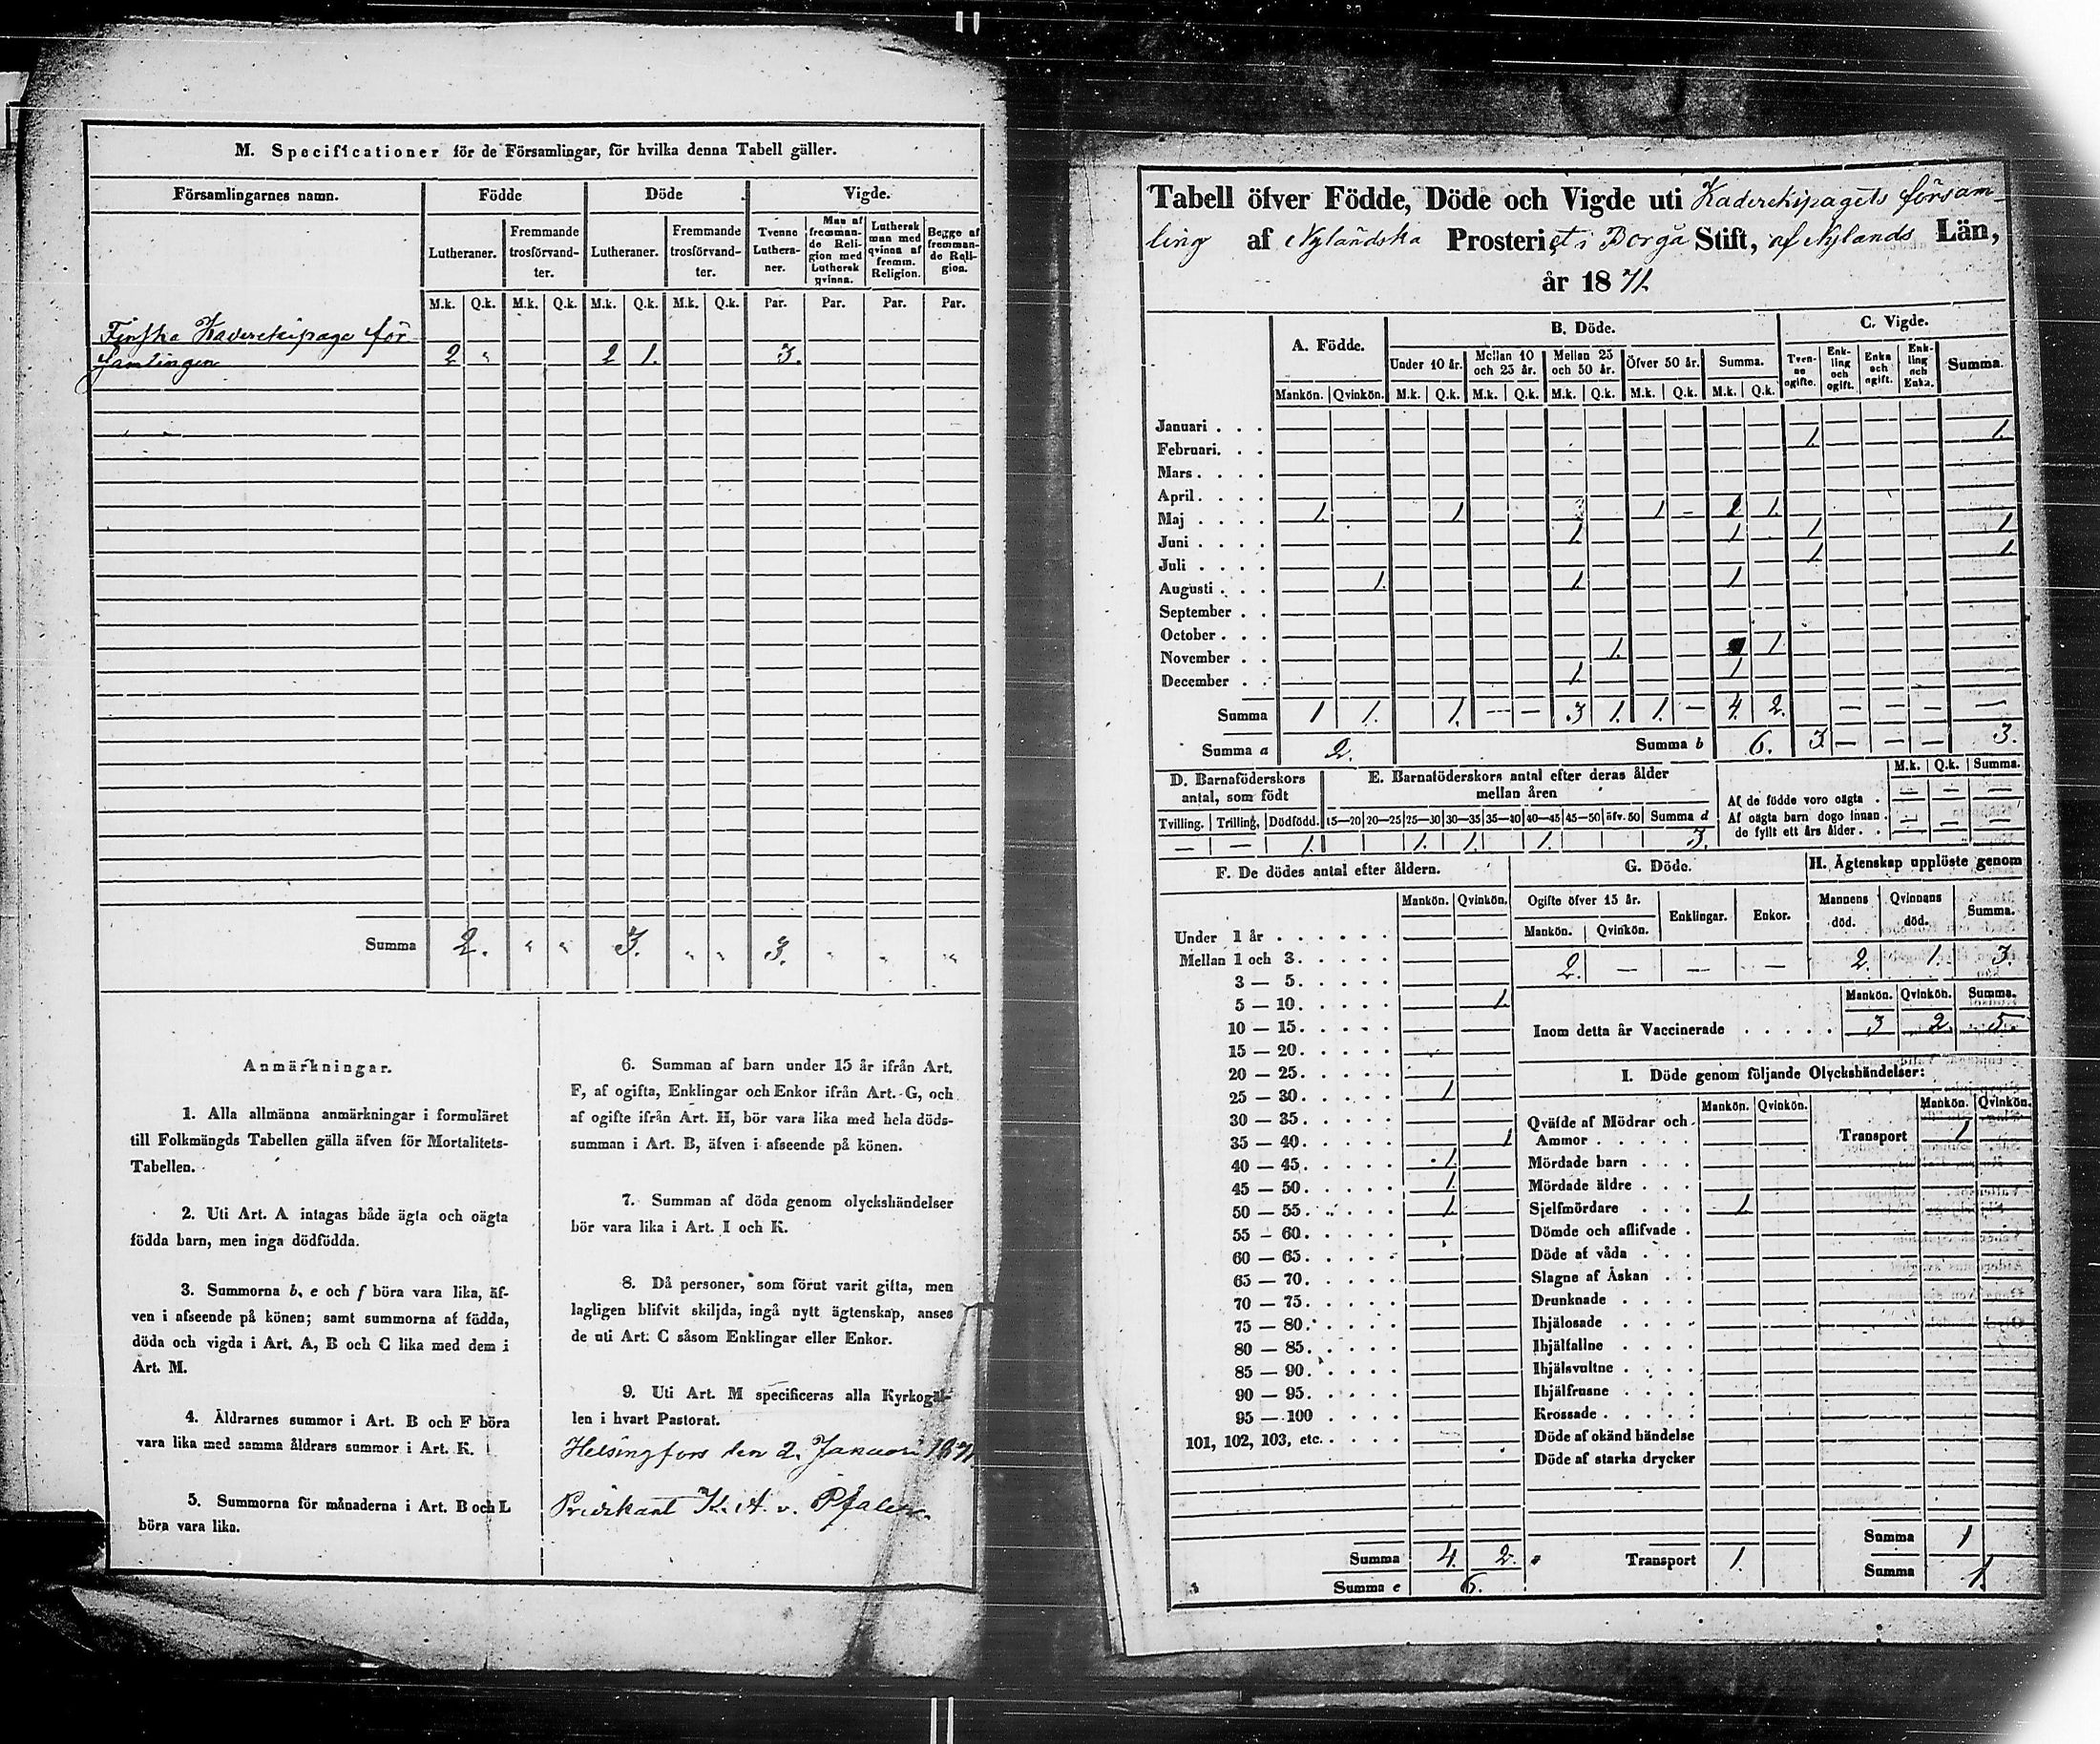 M. Specificationer för de Församlingar, för hvilka denna Tabell gäller.
Församlingarnes namn. Födde Döde Vigde.
Lutheraner. Fremmande trosförvandter. Lutheraner. Fremmande trosförvandter. Tvenne Lutheraner. Man af fremmande Religion med Luthersk qvinna. Luthersk man med qvinna af fremm. Religion. Begge af fremmande Religion.
M.k. Q.k. M.k. Q.k. M.k. Q.k. M.k. Q.k. Par. Par. Par. Par.
Finska Kaderekipage för
samlingen 2 " 2 1. 3.
Summa 2. " " 3. " " 3. " " "
Anmärkningar.
1. Alla allmänna anmärkningar i formuläret
till Folkmängds Tabellen gälla äfven för Mortalitets-
Tabellen.
2. Uti Art. A intagas både ägta och oägta
födda barn, men inga dödfödda.
3. Summorna b, e och f böra vara lika, äf-
ven i afseende på könen; samt summorna af födda,
döda och vigda i Art. A, B och C lika med dem i
Art. M.
4. Åldrarnes summor i Art. B och F böra
vara lika med samma åldrars summor i Art. K.
5. Summorna för månaderna i Art. B och L
böra vara lika.
6. Summan af barn under 15 år ifrån Art.
F, af ogifta, Enklingar och Enkor ifrån Art. G, och
af ogifte ifrån Art. H, bör vara lika med hela döds-
summan i Art. B, äfven i afseende på könen.
7. Summan af döda genom olyckshändelser
bör vara lika i Art. I och K.
8. Då personer, som förut varit gifta, men
lagligen blifvit skiljda, ingå nytt ägtenskap, anses
de uti Art. C såsom Enklingar eller Enkor.
9. Uti Art. M specificeras alla Kyrkogäl-
len i hvart Pastorat.
Helsingfors den 2. Januari 1871
Predikant K. A. v. Pfaler.
Tabell öfver Födde, Döde och Vigde uti Kaderekipagets försam-
ling af Nylandska Prosteriet i Borgå Stift, af Nylands Län,
år 1871.
A. Födde. B. Döde. C. Vigde.
Under 10 år. Mellan 10 och 25 år. Mellan 25 och 50 år. Öfver 50 år. Summa. Tvenne ogifte. Enkling och ogift. Enka och ogift. Enkling och Enka. Summa.
Mankön. Qvinkön. M.k. Q.k. M.k. Q.k. M.k. Q.k. M.k. Q.k. M.k. Q.k.
Januari . . .
Februari. . . 1. 1.
Mars . . . .
April . . . .
Maj . . . . 1. 1 1 - 1.
Juni . . . . 1. 1 1 1
Juli . . . . 1 1
Augusti . . . 1. 1. 1
September . .
October . . .
November . . 1. 1.
December . . 1 1
Summa 1 1. 1. — — 3 1. 1. — 4. 2. — — — —
Summa a 2. Summa b 6. 3. — — — 3.
D. Barnaföderskors antal, som födt E. Barnaföderskors antal efter deras ålder mellan åren
Tvilling. Trilling. Dödfödd. 15—20 20—25 25—30 30—35 35—40 40—45 45—50 öfv. 50 Summa d
— — 1. 1. 1. 1. 3.
M.k. Q.k. Summa.
Af de födde voro oägta . — — —
Af oägta barn dogo innan
de fyllt ett års ålder . . — — —
F. De dödes antal efter åldern.
Mankön. Qvinkön.
Under 1 år . . . . . .
Mellan 1 och 3. . . . .
3 — 5. . . . .
5 — 10. . . . . 1.
10 — 15. . . . .
15 — 20. . . . .
20 — 25. . . . .
25 — 30. . . . . 1
30 — 35. . . . .
35 — 40. . . . . 1
40 — 45. . . . . 1.
45 — 50. . . . . 1.
50 — 55. . . . . 1.
55 — 60. . . . .
60 — 65. . . . .
65 — 70. . . . .
70 — 75. . . . .
75 — 80. . . . .
80 — 85. . . . .
85 — 90. . . . .
90 — 95. . . . .
95 — 100 . . . .
101, 102, 103, etc. . . . .
Summa 4. 2.
Summa e 6.
G. Döde. H. Ägtenskap upplöste genom
Ogifte öfver 15 år. Enklingar. Enkor. Mannens död. Qvinnans död. Summa.
Mankön. Qvinkön.
2. — — — 2. 1. 3.
Mankön. Qvinkön. Summa.
Inom detta år Vaccinerade . . . . . 3 2 5.
I. Döde genom följande Olyckshändelser:
Mankön. Qvinkön. Mankön. Qvinkön.
Qväfde af Mödrar och
Ammor . . . . . Transport 1
Mördade barn . . .
Mördade äldre . . .
Sjelfmördare . . . 1.
Dömde och aflifvade .
Döde af våda . . .
Slagne af Åskan . .
Drunknade . . . .
Ihjälosade . . . .
Ihjälfallne . . . .
Ihjälsvultne . . . .
Ihjälfrusne . . . .
Krossade . . . . .
Döde af okänd händelse
Döde af starka drycker
Summa 1
Transport 1. Summa 1.